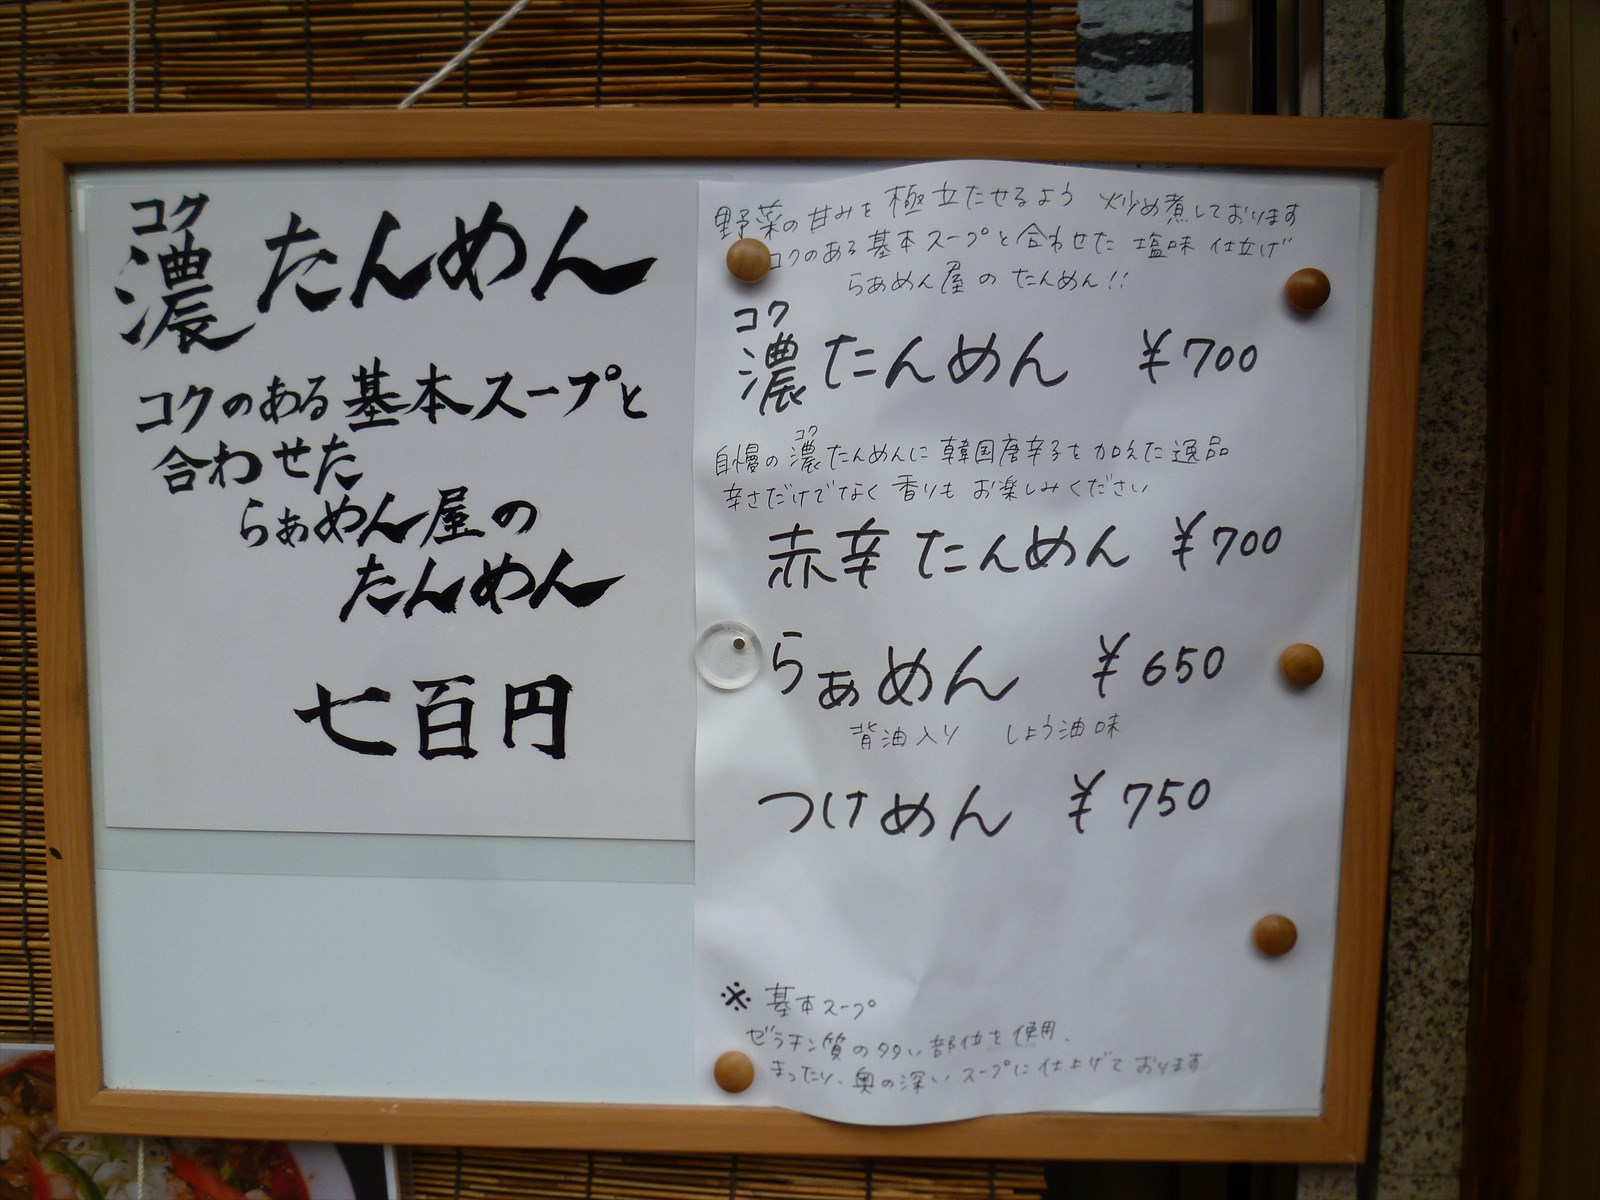 コク
濃たんめん
コクのある基本スープと
合わせた
らぁめん屋の
たんめん
七百円
野菜の甘みを極立たせるよう 炒め煮しております
コクのある基本スープと合わせた 塩味仕立げ
らぁめん屋のたんめん!!
コク
濃たんめん ¥700
コク
自慢の濃たんめんに韓国唐辛子を加えた逸品
辛さだけでなく香りもお楽しみください
赤辛たんめん ¥700
らぁめん ¥650
背油入り しょう油味
つけめん ¥750
※基本スープ
ゼラチン質の多い部位を使用、
まったり、奥の深いスープに仕上げております